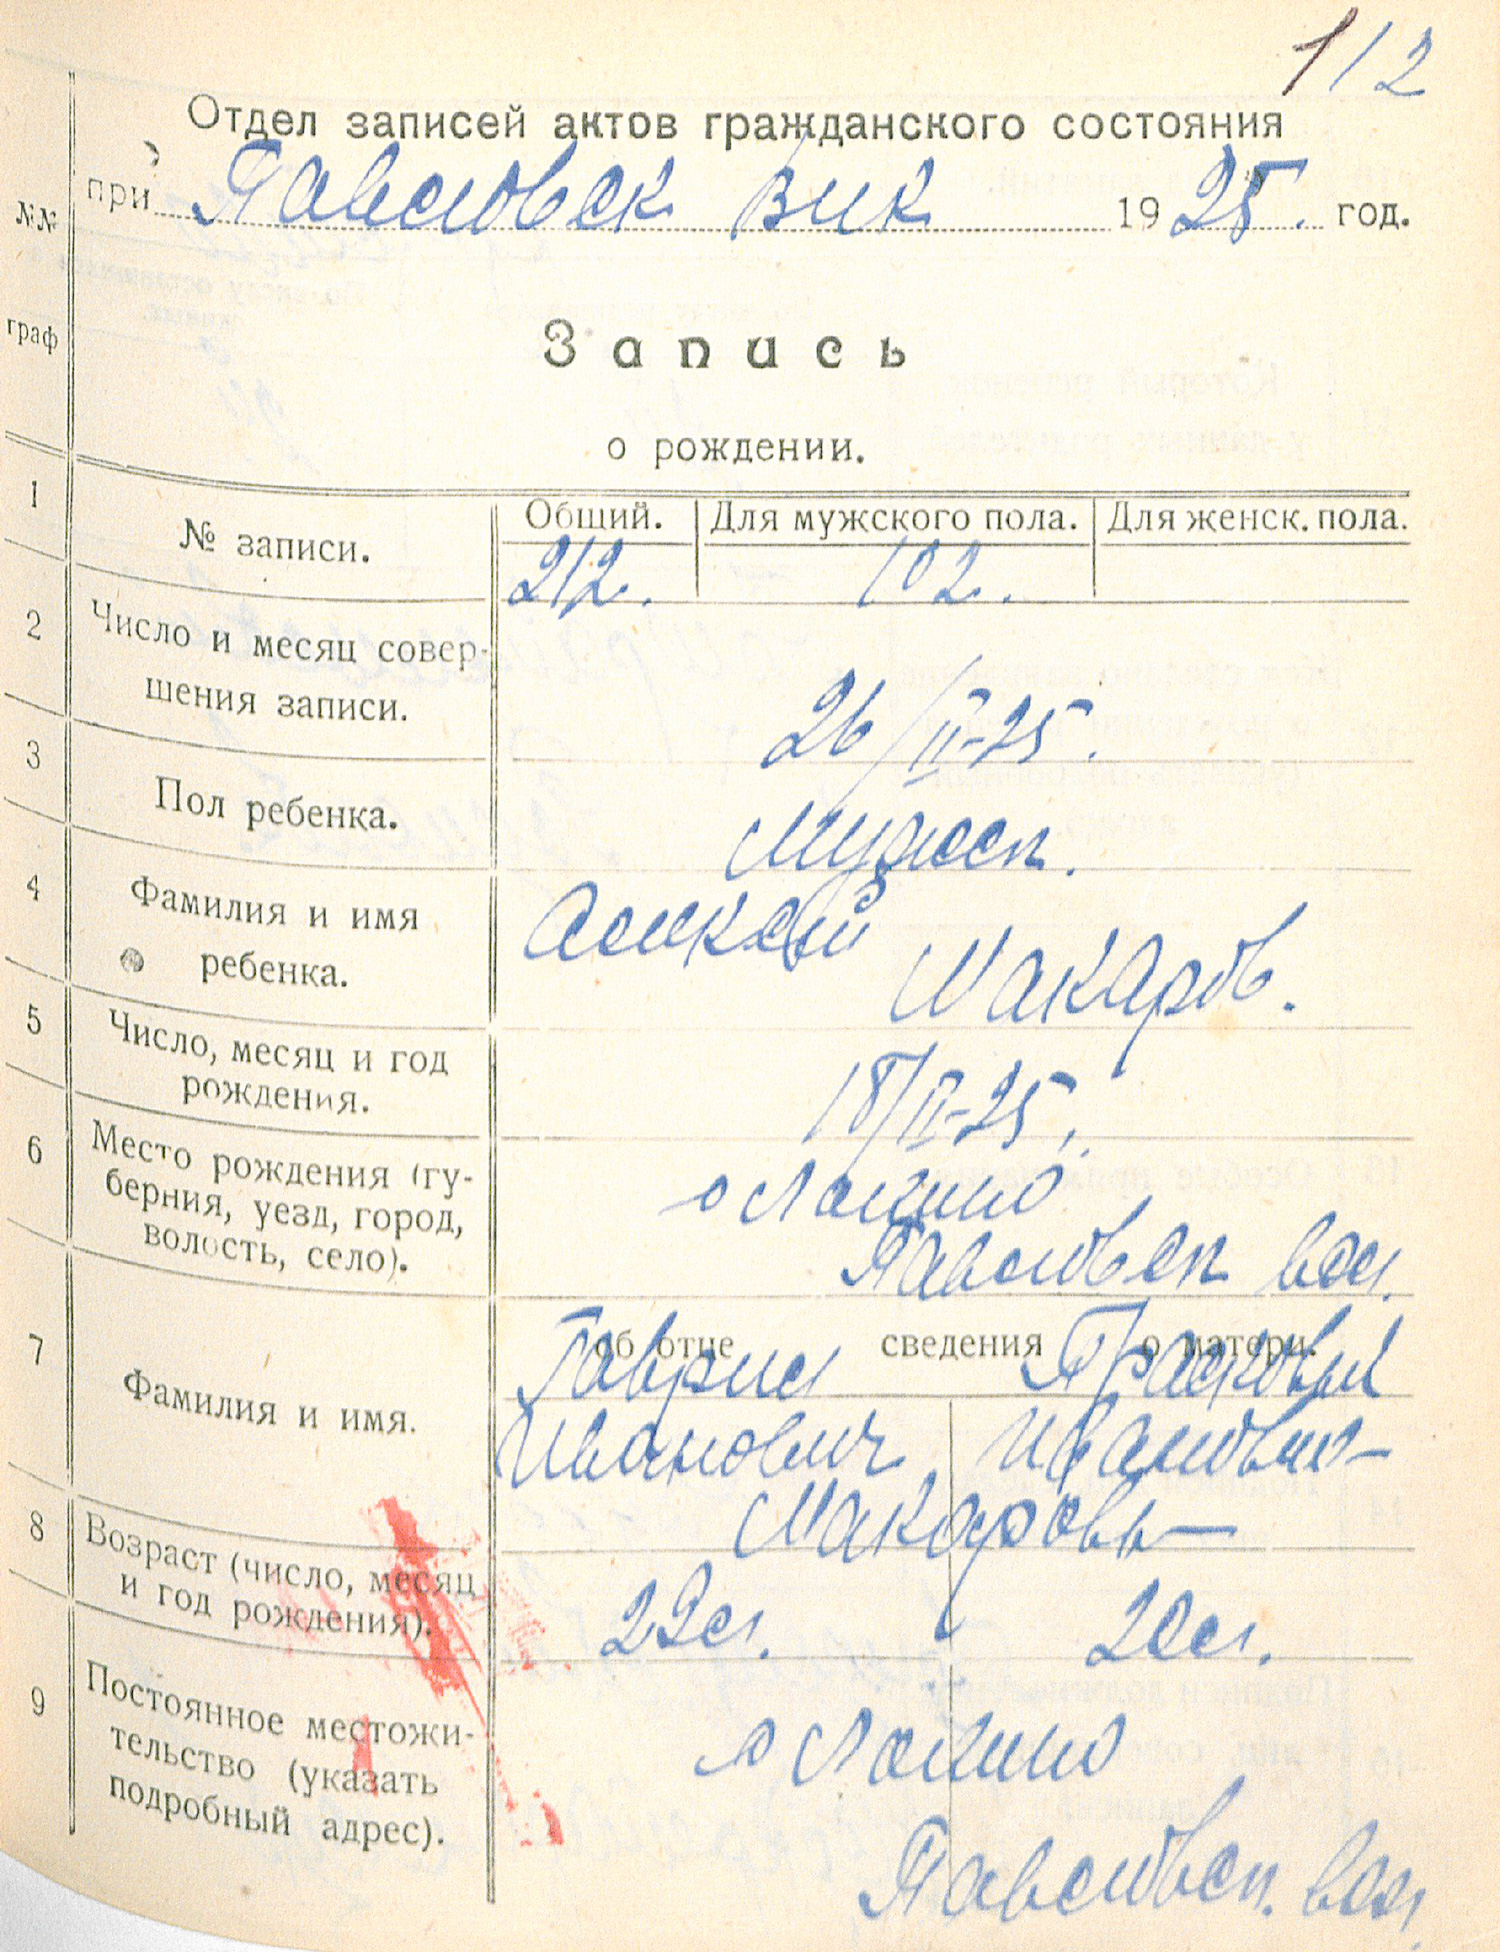 112
Отдел записей актов гражданского состояния
при Павловск вик 1925. год.
№№ граф
Запись
о рождении.
1 № записи. Общий. Для мужского пола. Для женск. пола.
212. 102.
2 Число и месяц совер-
шения записи.
26/II-25.
3 Пол ребенка. Мужск.
4 Фамилия и имя
ребенка.
Алексей
Макаров.
5 Число, месяц и год
рождения.
18/II-25.
6 Место рождения (гу-
берния, уезд, город,
волость, село).
Павловск вол.
7 Фамилия и имя.
об отце сведения о матери.
Гаврил Прасковья
Иванович Ивановна
Макаровы
8 Возраст (число, месяц
и год рождения).
22л. 20л.
9 Постоянное местожи-
тельство (указать
подробный адрес).
Павловск. вол.